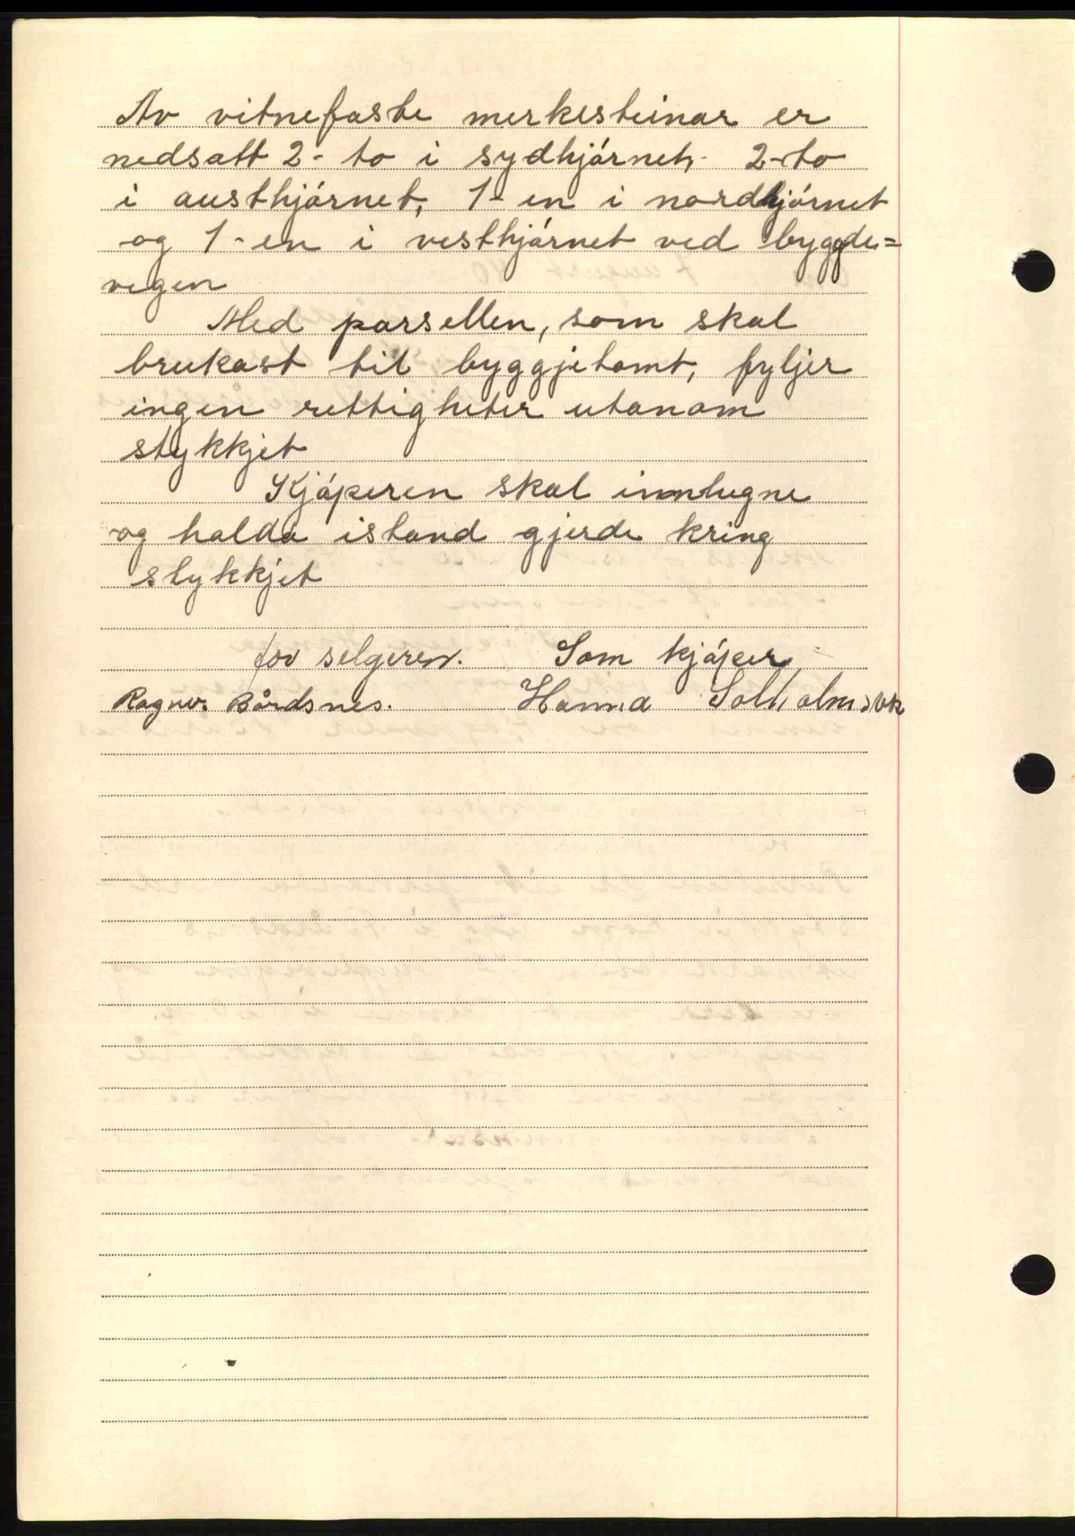 Av vitnefaste merkesteinar er
nedsatt 2- to i sydhjórnet, 2-to
i austhjórnet, 1- en i nordhjórnet
og 1- en i vesthjórnet ved bygde=
vegen
Med parsellen, som skal
brukast til byggjetomt, fyljer
ingen rettigheter utanom
stykkjet
Kjóperen skal innhegne
og halda istand gjerde kring
stykkjet
for selgeren. Som kjóper
Ragnv. Bårdsnes. Hanna